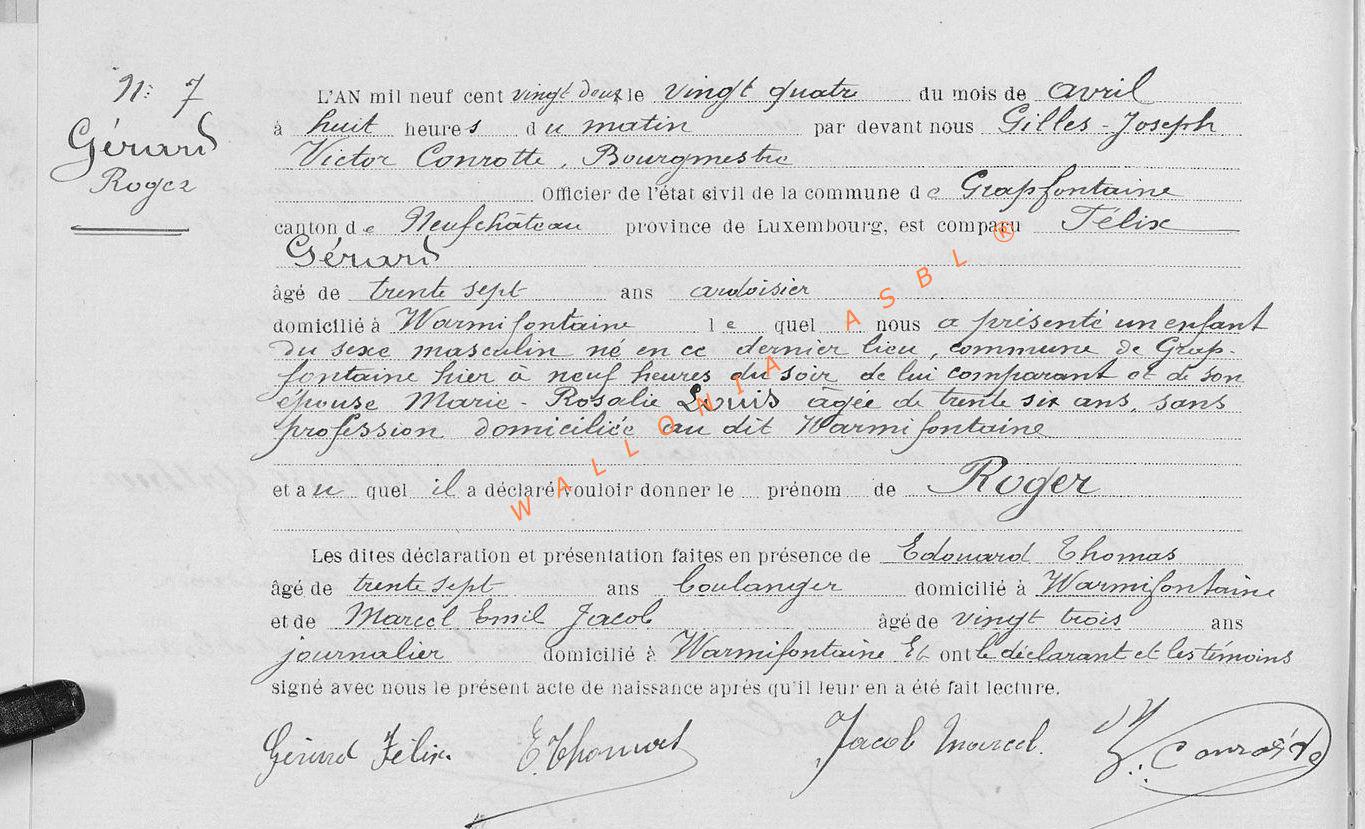 N: 7
Gérard
Roger
L'AN mil neuf cent vingt deux le vingt quatre du mois de avril
à huit heures du matin par devant nous Gilles-Joseph
Victor Conrotte, Bourgmestre
Officier de l'état civil de la commune de Grapfontaine
canton de Neufchâteau province de Luxembourg, est comparu Félix
Gérard
âgé de trente sept ans ardoisier
domicilié à Warmifontaine lequel nous a présenté un enfant
du sexe masculin né en ce dernier lieu, commune de Grap-
fontaine hier à neuf heures du soir de lui comparant et de son
épouse Marie-Rosalie Louis âgée de trente six ans, sans
profession domiciliée au dit Warmifontaine
et auquel il a déclaré vouloir donner le prénom de Roger
Les dites déclaration et présentation faites en présence de Edouard Thomas
âgé de trente sept ans boulanger domicilié à Warmifontaine
et de Marcel Emil Jacob âgé de vingt trois ans
journalier domicilié à Warmifontaine Et ont le déclarant et les témoins
signé avec nous le présent acte de naissance après qu'il leur en a été fait lecture.
Gérard Félix. E. Thomas Jacob Marcel. Conrotte
WALLONIA ASBL ®